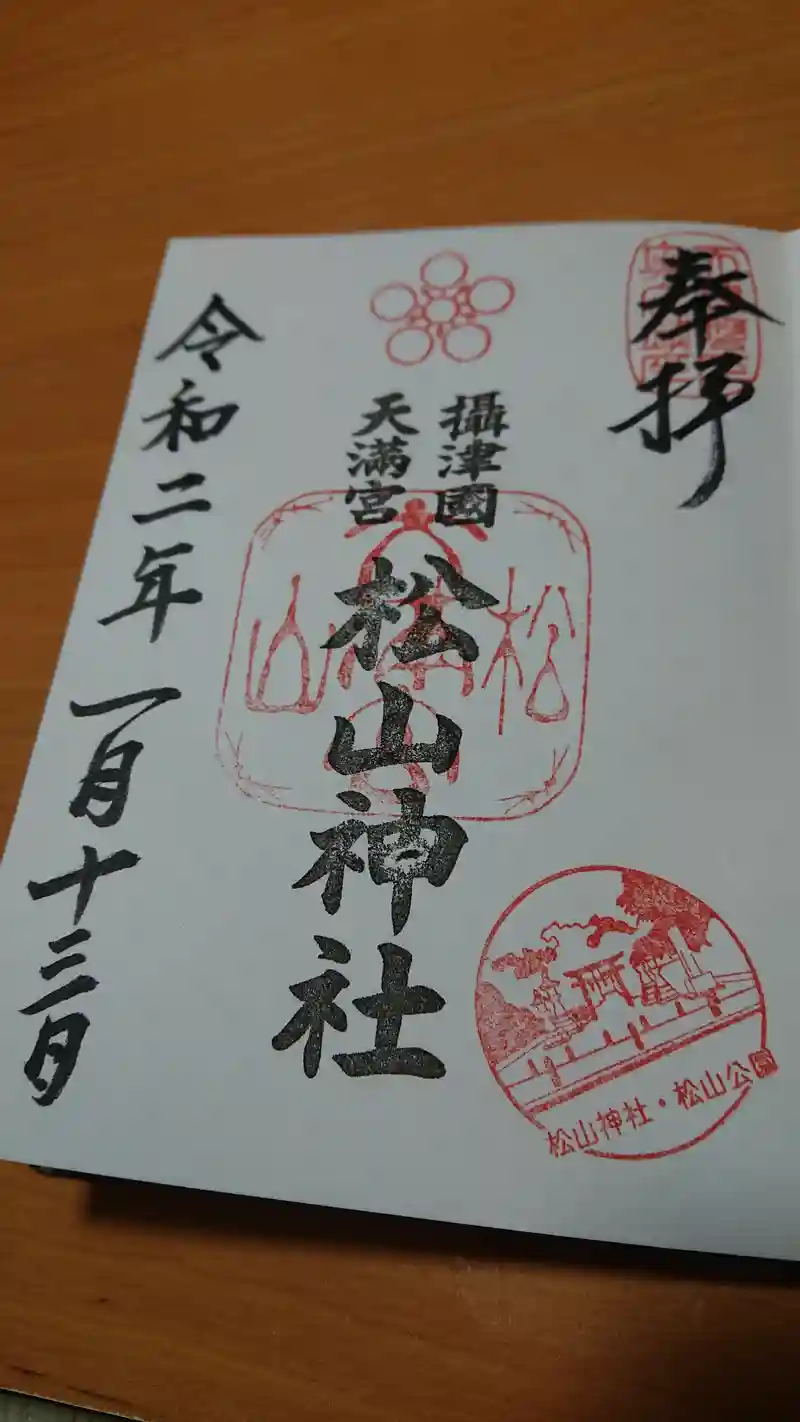 奉拝
攝津國
天満宮
松山神社
令和二年一月十三日
松山神社・松山公園